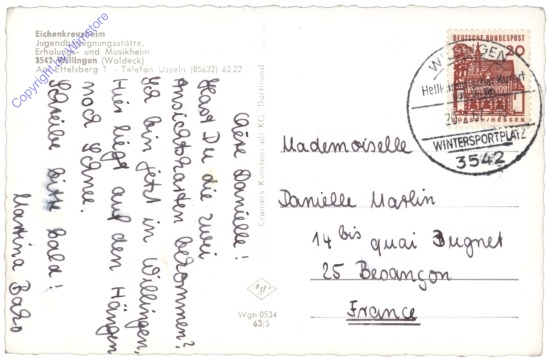 Eichenkreuzheim
Jugendbegegnungsstätte,
Erholungs- und Musikheim
3542 Willingen (Waldeck)
Am Ettelsberg 1 - Telefon Usseln (05632) 63 22
Chère Danielle!
Hast Du die zwei
Ansichtskarten bekommen?
Ich bin jetzt in Willingen,
Hier liegt auf den Hängen
noch Schnee.
Schreibe bitte bald!
Martina
Cramers Kunstanstalt KG, Dortmund
Wgn 0534
63/5
DEUTSCHE BUNDESPOST
20
HESSEN
WILLINGEN
Heilklimatischer Kurort
WINTERSPORTPLATZ
3542
Mademoiselle
Danielle Marlin
14 bis quai Bugnet
25 Besançon
France